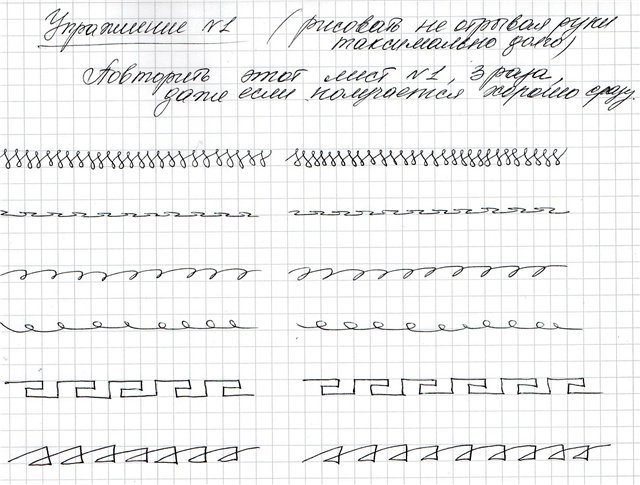 Упражнение №1 (рисовать не отрывая руки
максимально долго)
Повторить этот лист №1, 3 раза,
даже если получается хорошо сразу